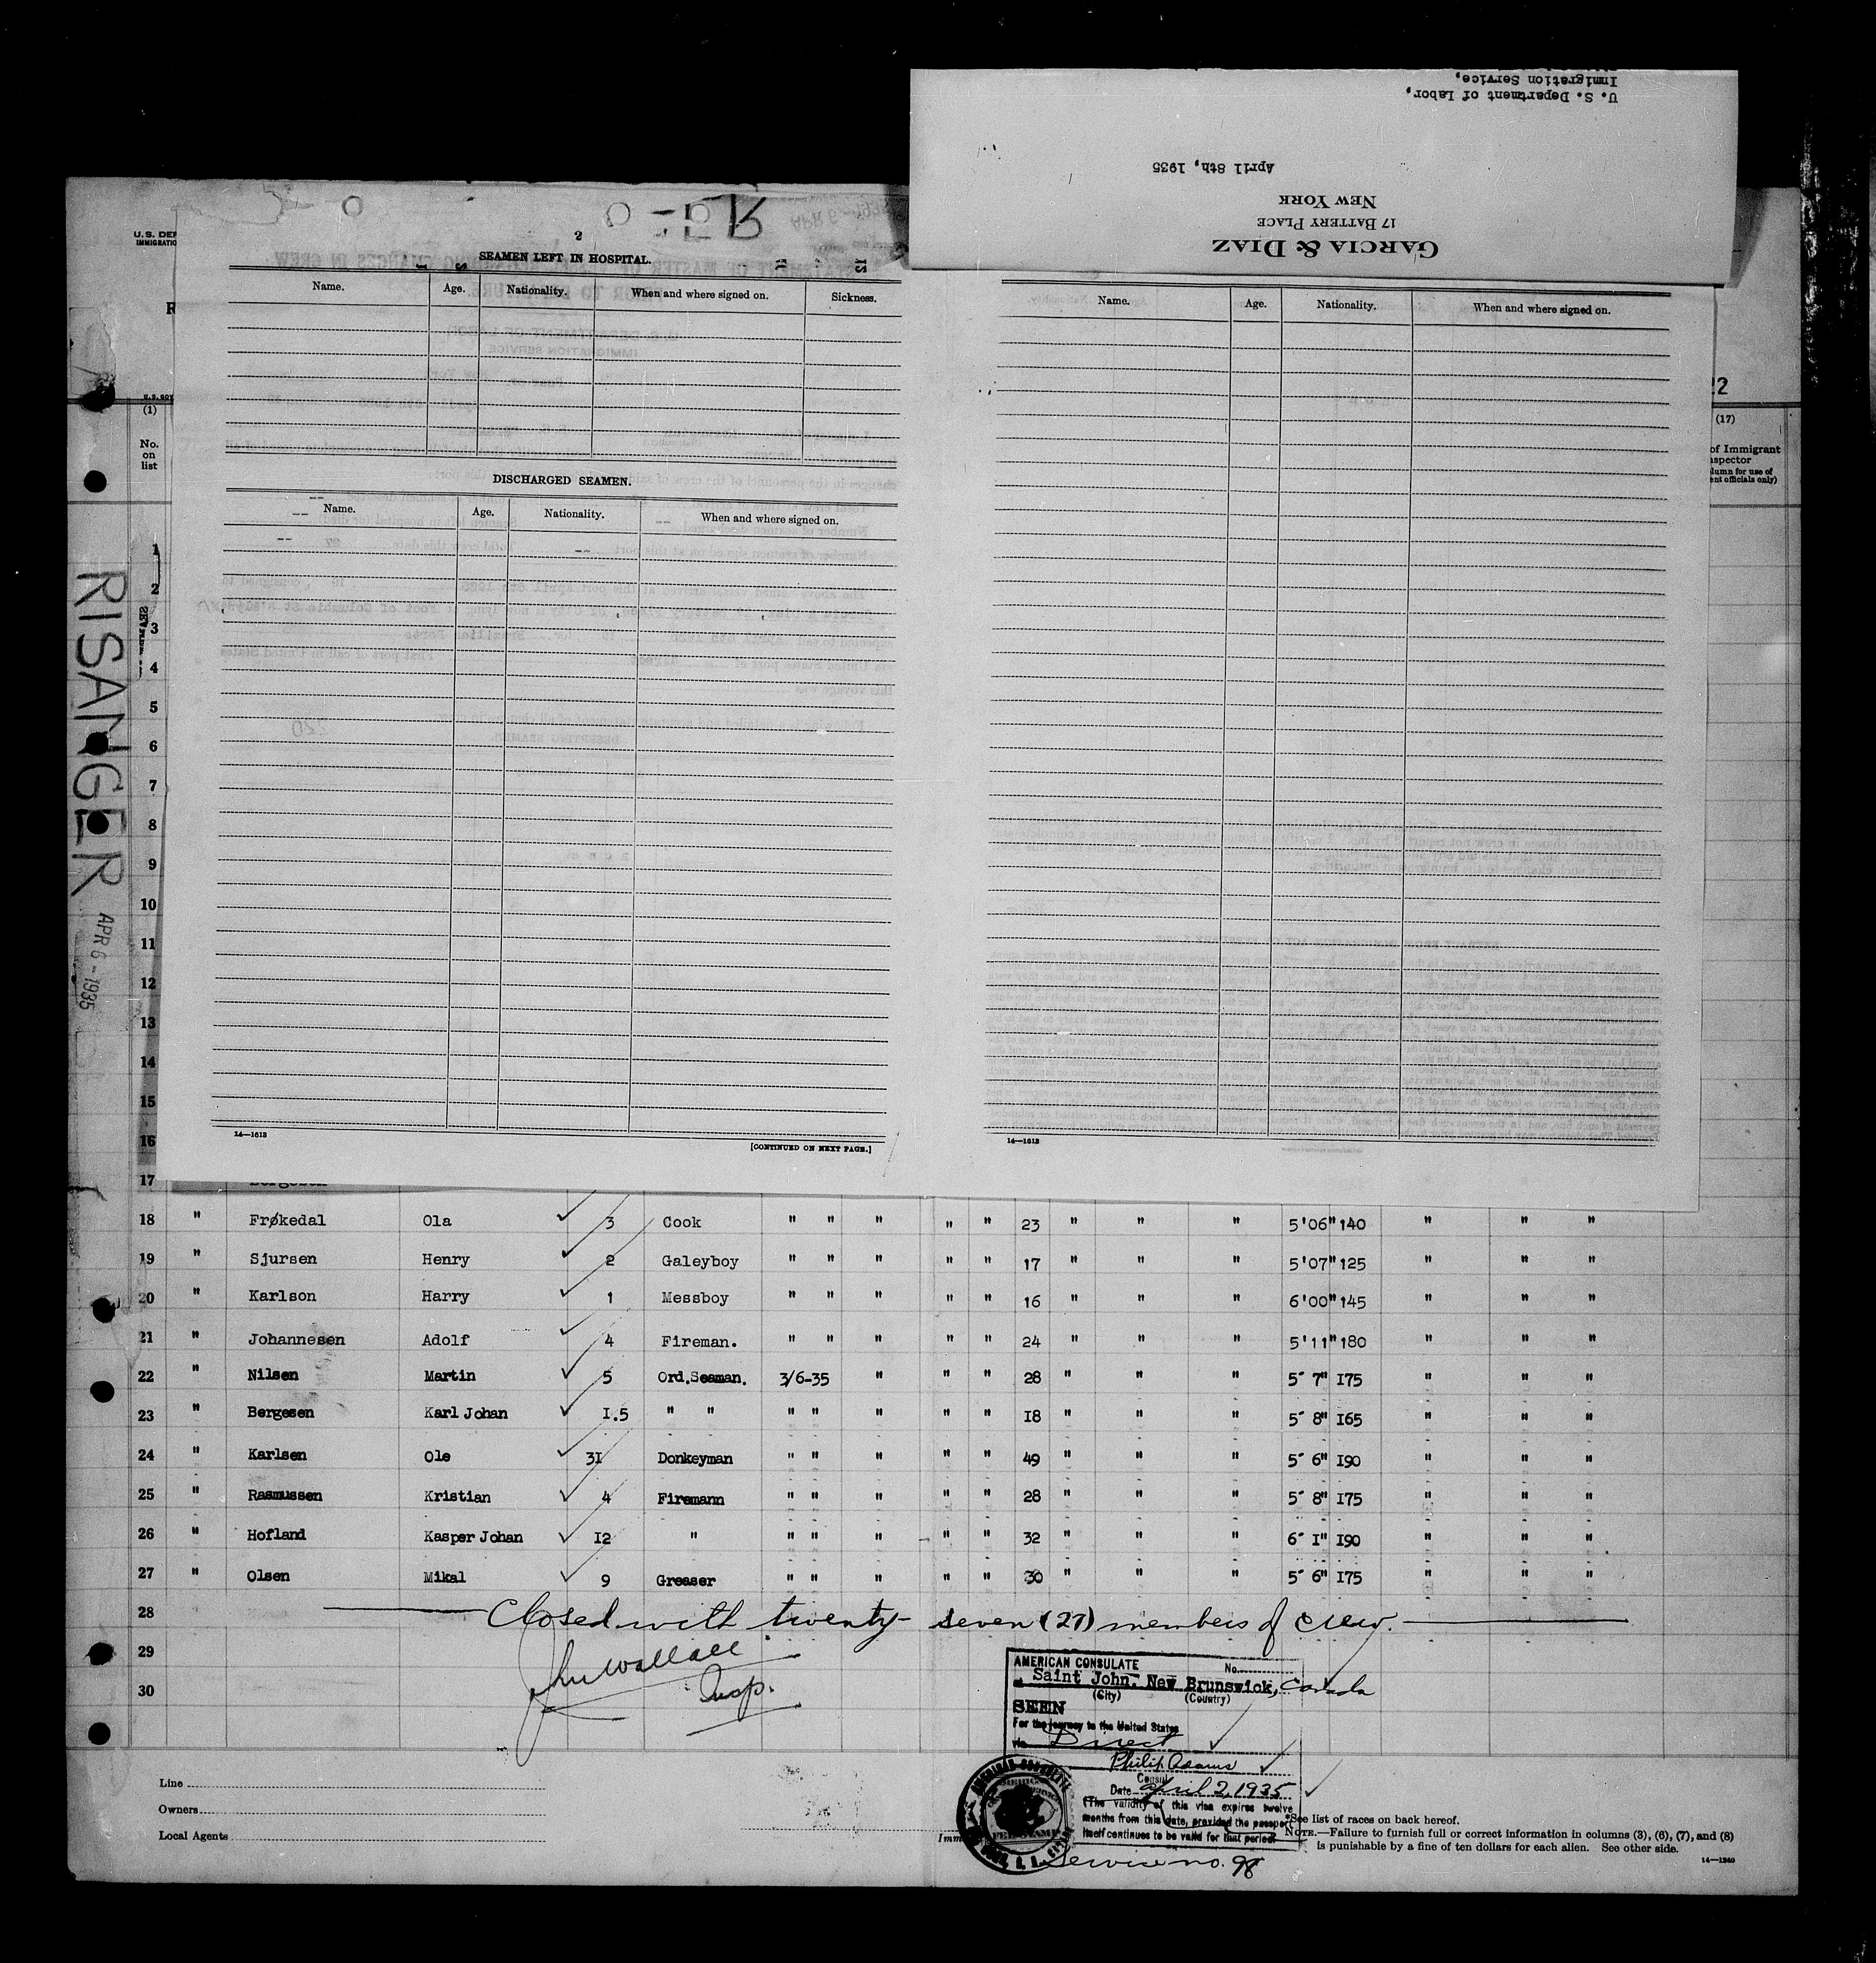 U. S. Department of Labor,
Immigration Service,
April 8th, 1935
GARCIA & DIAZ
17 BATTERY PLACE
NEW YORK
U.S. DEP
IMMIGRATIO
R
U.S. GOV
22
(1)
No.
on
list
(17)
of Immigrant
nspector
lumn for use of
ent officials only)
RISANGER
APR 6 - 1935
2
SEAMEN LEFT IN HOSPITAL.
Name. Age. Nationality. When and where signed on. Sickness.
DISCHARGED SEAMEN.
Name. Age. Nationality. When and where signed on.
14—1613
[CONTINUED ON NEXT PAGE.]
Name. Age. Nationality. When and where signed on.
14—1613
1
2
3
4
5
6
7
8
9
10
11
12
13
14
15
16
17 Bergesen
18 " Frøkedal Ola 3 Cook " " " " " 23 " " " 5'06" 140 " " "
19 " Sjursen Henry 2 Galeyboy " " " " " 17 " " " 5'07" 125 " " "
20 " Karlson Harry 1 Messboy " " " " " 16 " " " 6'00" 145 " " "
21 " Johannesen Adolf 4 Fireman. " " " " " 24 " " " 5'11" 180 " " "
22 " Nilsen Martin 5 Ord.Seaman. 3/6-35 " " " 28 " " " 5' 7" I75 " " "
23 " Bergesen Karl Johan I.5 " " " " " " " I8 " " " 5' 8" I65 " " "
24 " Karlsen Ole 3I Donkeyman " " " " " 49 " " " 5' 6" I90 " " "
25 " Rasmussen Kristian 4 Firemann " " " " " 28 " " " 5' 8" I75 " " "
26 " Hofland Kasper Johan I2 " " " " " " 32 " " " 6' I" I90 " " "
27 " Olsen Mikal 9 Greaser " " " " " 30 " " " 5' 6" I75 " " "
28 Closed with twenty-seven (27) members of crew.
29 Jno Wallace
30 Insp.
AMERICAN CONSULATE No.
at Saint John, New Brunswick, Canada
(City) (Country)
SEEN
For the journey to the United States
via Direct
Philip Adams
Consul
Date April 2, 1935
(The validity of this visa expires twelve
months from this date, provided the passport
itself continues to be valid for that period)
Service no. 98
Line
Owners
Local Agents
Imm
*See list of races on back hereof.
NOTE.—Failure to furnish full or correct information in columns (3), (6), (7), and (8)
is punishable by a fine of ten dollars for each alien. See other side.
14—1240